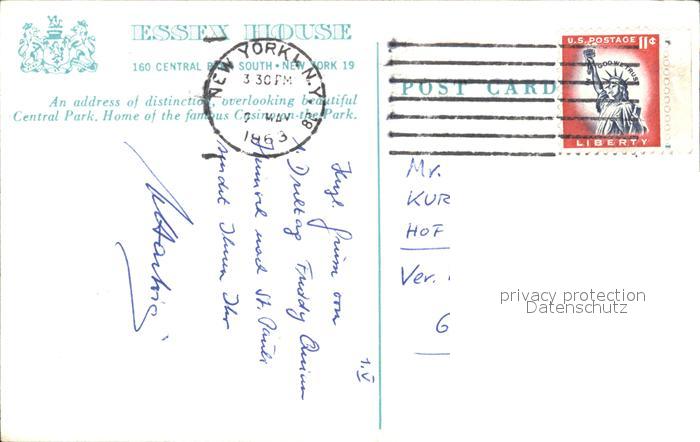 ESSEX HOUSE
160 CENTRAL PARK SOUTH • NEW YORK 19
An address of distinction, overlooking beautiful
Central Park. Home of the famous Casino-on-the-Park.
NEW YORK, N.Y.
3 30 PM
MAY
1963
U.S. POSTAGE 11¢
IN GOD WE TRUST
LIBERTY
POST CARD
Mr.
KUR
HOF
Ver.
G
privacy protection
Datenschutz
vom
Drehtag Freddy Quinn
Heimweh nach St. Pauli
sendet Ihnen Ihr
1.V